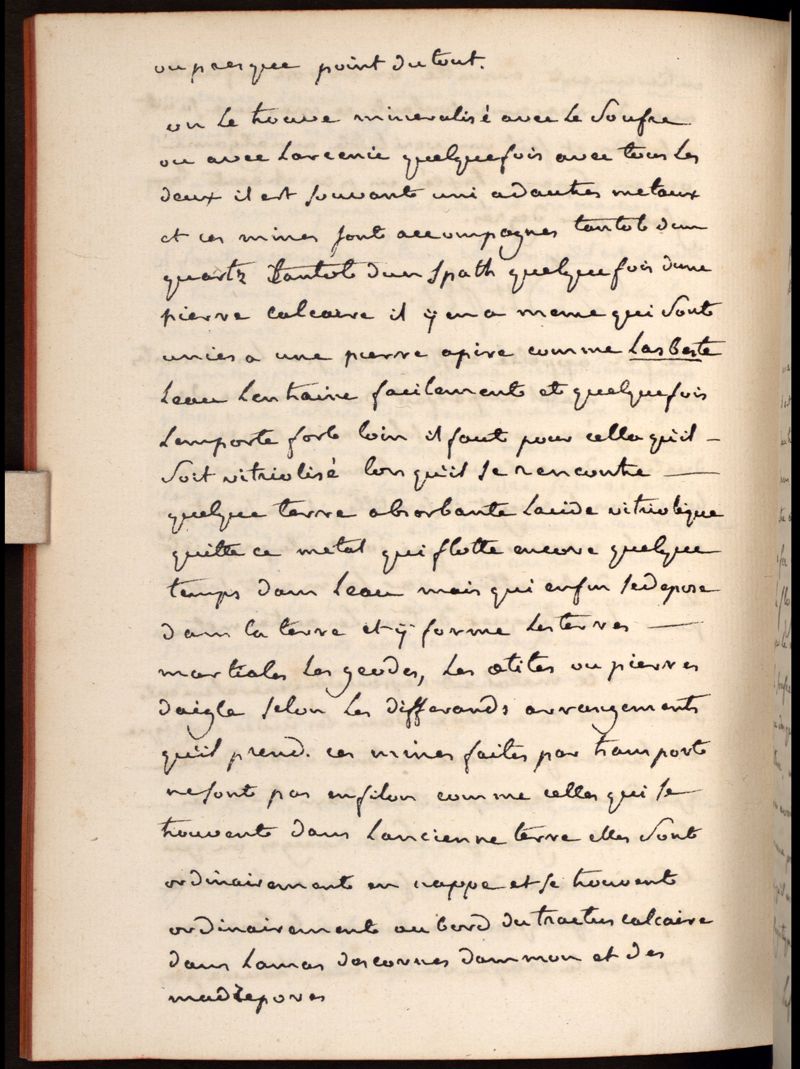 ou presque point du tout.
on le trouve mineralisé avec le Soufre
ou avec larcenic quelquefois avec tous les
deux il est souvante uni adautres metaux
et ces mines sont accompagnes tantot dun
quartz tantot dun spath quelquefois dune
pierre calcaire il ÿ en a meme qui sont
unies a une pierre apire comme lasbeste
leau lentraine facilement et quelquefois
lemporte fort loin il faut pour cella quil –
soit vitriolisé lors qu'il se rencontre —
quelque terre absorbante lacide vitriolique
quitte ce metal qui flotte encore quelque
temps dans leau mais qui enfin se depose
dans la terre et ÿ forme les terres —
martiales les geodes, les œtites ou pierres
daigle selon les differands arrangements
qu'il prend. ces mines faites par transport
ne sont pas en filon comme celles qui se
trouvent dans lancienne terre elles sont
ordinairement en nappe et se trouvent
ordinairement au bord du tractus calcaire
dans lamas des cornes dammon et des
madrepores